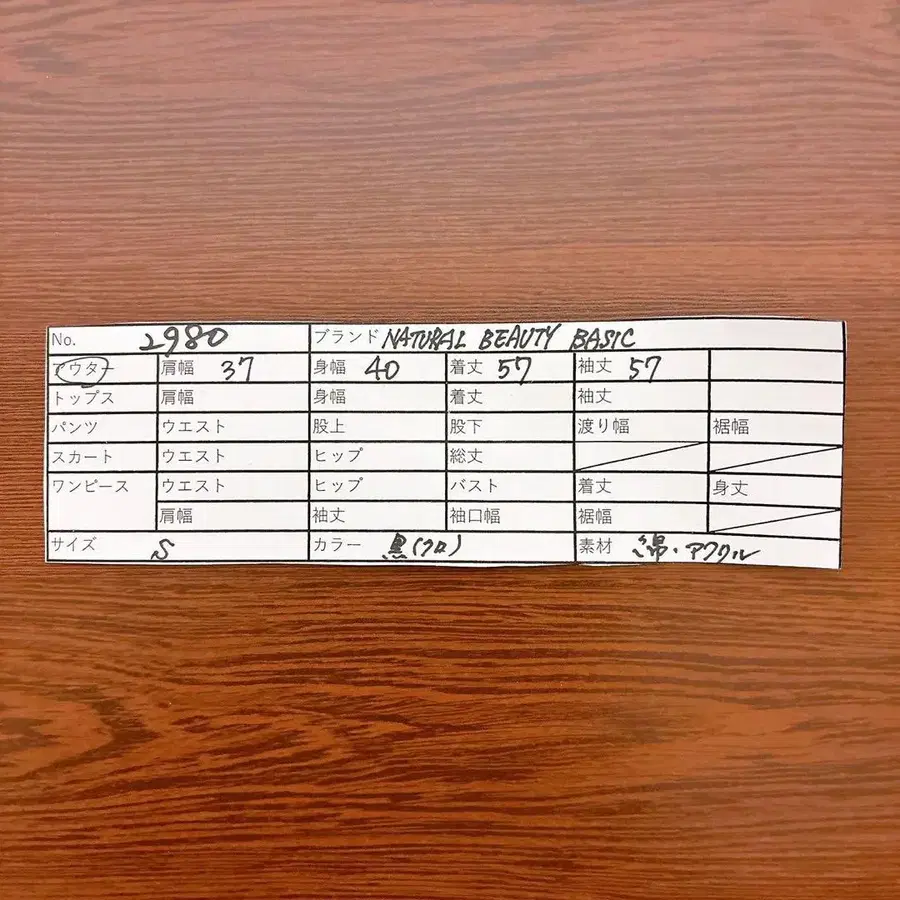 No. 2980 ブランド NATURAL BEAUTY BASIC
アウター 肩幅 37 身幅 40 着丈 57 袖丈 57
トップス 肩幅 身幅 着丈 袖丈
パンツ ウエスト 股上 股下 渡り幅 裾幅
スカート ウエスト ヒップ 総丈
ワンピース ウエスト ヒップ バスト 着丈 身丈
肩幅 袖丈 袖口幅 裾幅
サイズ S カラー 黒(クロ) 素材 綿・アクリル